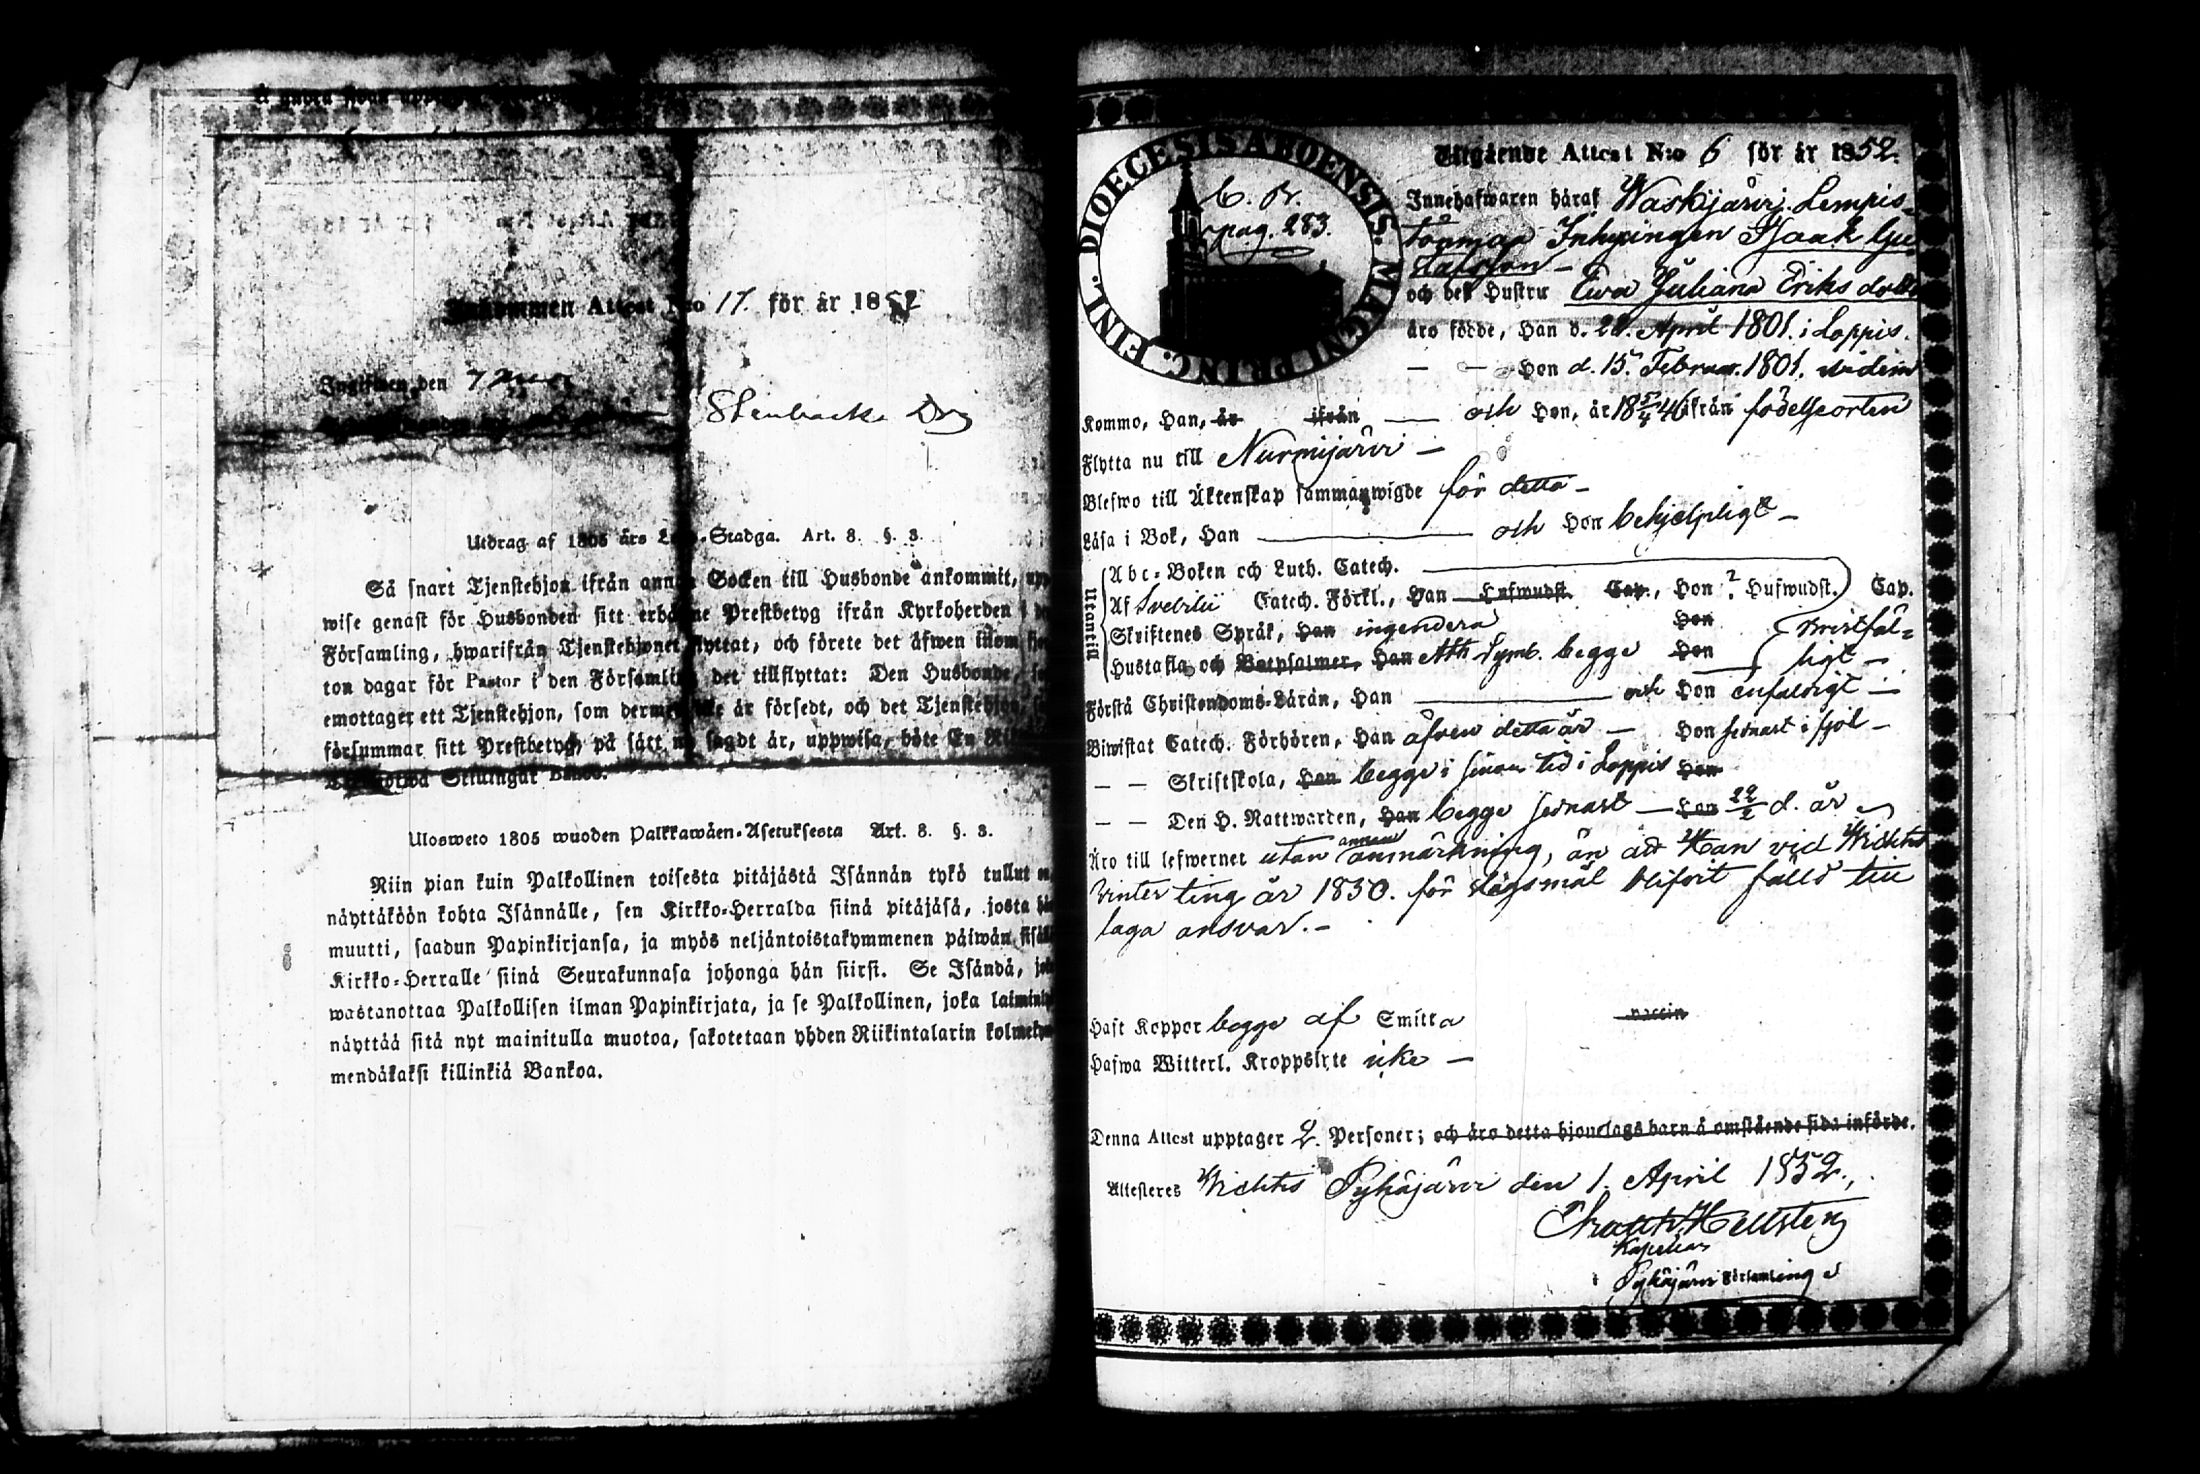 Inkommen Attest N:o 17. för år 1852
Ingifwen den 7
Stenbäck
Utdrag af 1805 års Lego-Stadga. Art. 8. §. 3.
Så snart Tjenstehjon ifrån annan Socken till Husbonde ankommit,
wise genast för Husbonden sitt erhållne Prestbetyg ifrån Kyrkoherden i
Församling, hwarifrån Tjenstehjonet flyttat, och förete det äfwen inom
ton dagar för Pastor i den Församling det tillflyttat: Den Husbonde,
emottager ett Tjenstehjon, som dermed icke är försedt, och det Tjenstehjon,
försummar sitt Prestbetyg, på sätt nu sagdt är, uppwisa, böte En
Skillingar Banco.
Ulosweto 1805 wuoden Palkkawäen-Asetuksesta Art. 8. §. 3.
Niin pian kuin Palkollinen toisesta pitäjästä Isännän tykö tullut on,
näyttäköön kohta Isännälle, sen Kirkko-Herralda siinä pitäjäsä, josta hän
muutti, saadun Papinkirjansa, ja myös neljäntoistakymmenen päiwän sisällä
Kirkko-Herralle siinä Seurakunnasa johonga hän siirsi. Se Isändä, joka
wastanottaa Palkollisen ilman Papinkirjata, ja se Palkollinen, joka laimin
näyttää sitä nyt mainitulla muotoa, sakotetaan yhden Riikintalarin kolmekym
mendäkaksi killinkiä Bankoa.
DIOECESIS ABOENSIS. MAGNI PRINC. FINL.
pag. 283.
Utgående Attest N:o 6 för år 1852.
Innehafwaren häraf Waskijärwi Lempis-
tönmaa Inhysingen Isaak Gu
stafsson –
och dess Hustru Ewa Juliana Eriks dotter
äro födde, Han d. 22. April 1801. i Loppis.
— — Hon d. 15. Februar. 1801. ibidem
Kommo, Han, är ifrån — och Hon, år 18 5/4 46 ifrån födelseorten
Flytta nu till Nurmijärvi –
Blefwo till Äktenskap sammanwigde för detta –
Läsa i Bok, Han — och Hon behjelpligt –
Utantill
Abc-Boken och Luth. Catech.
Af Svebilii Catech. Förkl., Han Hufwudst. Cap., Hon ? Hufwudst. Cap.
Skriftenes Språk, Han ingendera Hon bristfäl-
Hustafla och Botpsalmer, Han Ath Symb. begge Hon ligt –
Förstå Christendoms-Läran, Han — och Hon enfaldigt –
Biwistat Catech. Förhören, Han äfven detta år – Hon sednast i fjol –
— — Skriftskola, Han begge i sinom tid i Loppis Hon
— — Den H. Nattwarden, Han begge sednast – Hon 22/2 d. år
Äro till lefwernet utan annan anmärkning, än att Han vid Wichtis
Vinter ting år 1830. för lägsmål blifvit fälld till
laga ansvar. –
Haft Koppor begge af Smitta
Hafwa Witterl. Kroppslyte icke –
Denna Attest upptager 2. Personer; och äro detta hjonelags barn å omstående sida införde.
Attesteres Wichtis Pyhäjärvi den 1. April 1852.
Hellsten
Kapellan
i Pyhäjärvi Församling